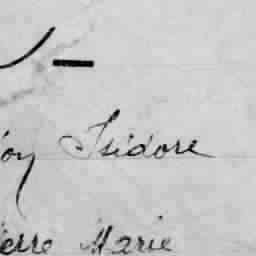 oy Isidore
ierre Marie